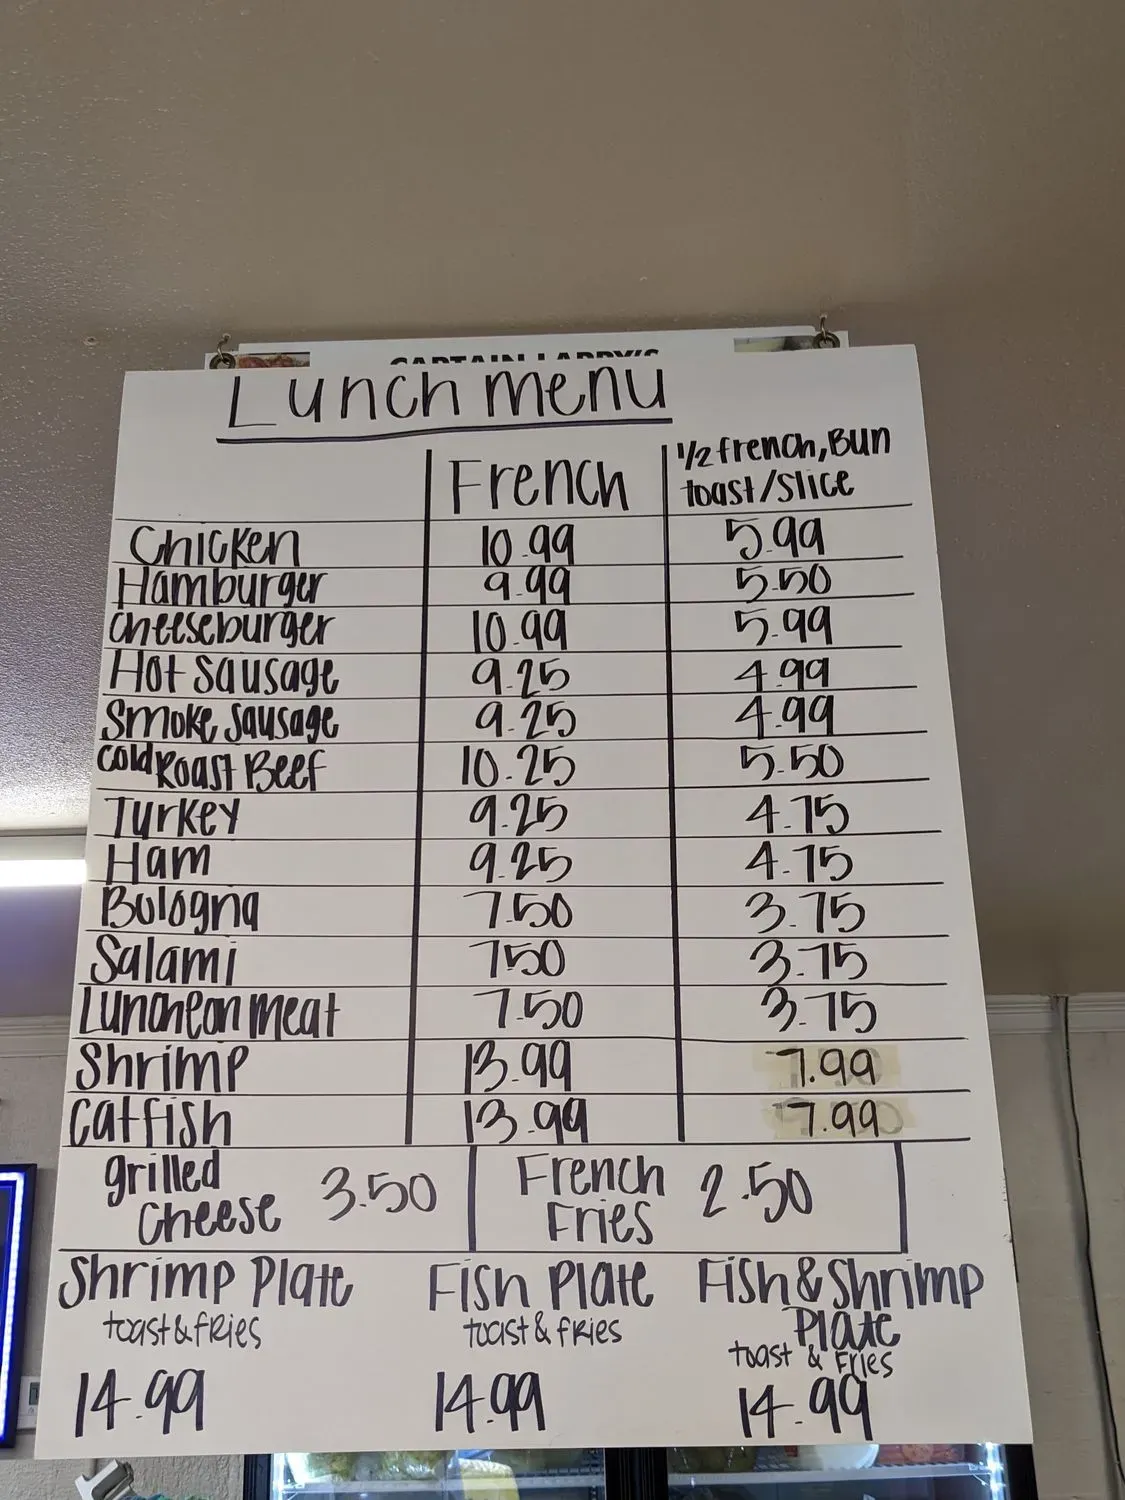 CAPTAIN LARRY'S
Lunch menu
French
1/2 french, Bun
toast/slice
Chicken 10.99 5.99
Hamburger 9.99 5.50
cheeseburger 10.99 5.99
Hot sausage 9.25 4.99
Smoke sausage 9.25 4.99
Cold Roast Beef 10.25 5.50
Turkey 9.25 4.75
Ham 9.25 4.75
Bologna 7.50 3.75
Salami 7.50 3.75
Luncheon meat 7.50 3.75
Shrimp 13.99 7.99
Catfish 13.99 7.99
grilled
Cheese
3.50
French
Fries
2.50
Shrimp Plate
toast & fries
14.99
Fish Plate
toast & fries
14.99
Fish & Shrimp
Plate
toast & Fries
14.99